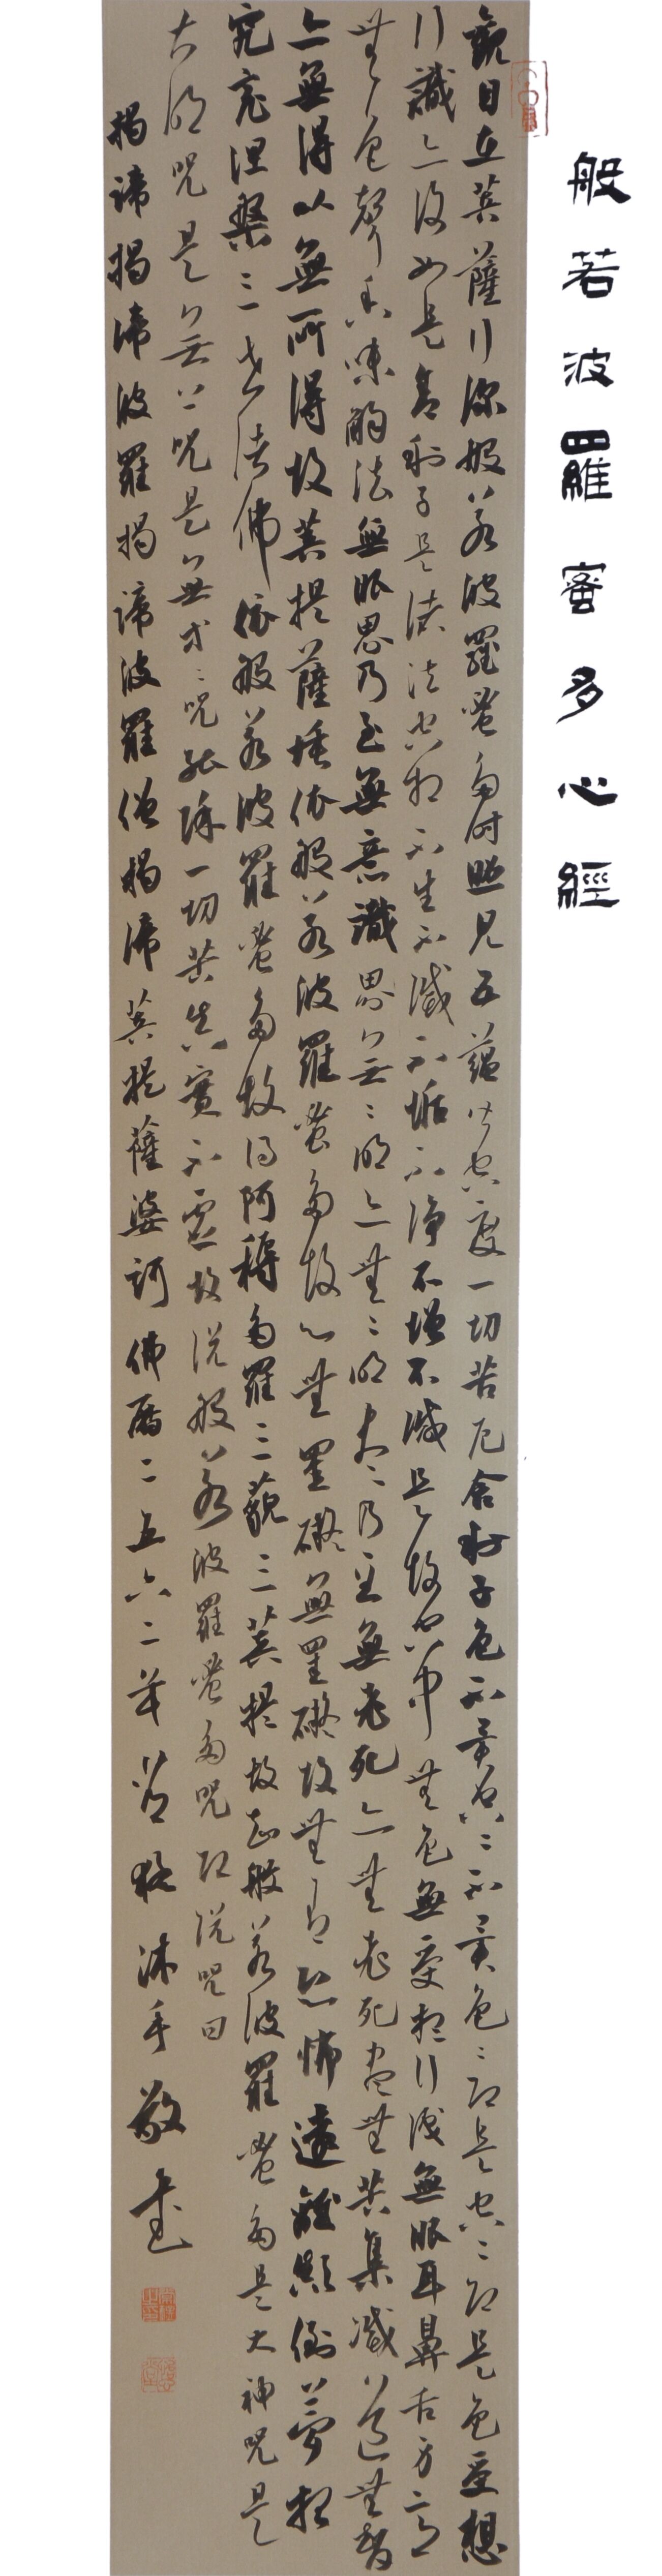 般若波羅蜜多心經
觀自在菩薩行深般若波羅蜜多時照見五蘊皆空度一切苦厄舍利子色不異空々不異色々即是空々即是色受想
行識亦復如是舍利子是諸法空相不生不滅不垢不淨不增不減是故空中無色無受想行識無眼耳鼻舌身意
無色聲香味觸法無眼界乃至無意識界無々明亦無々明盡乃至無老死亦無老死盡無苦集滅道無智
亦無得以無所得故菩提薩埵依般若波羅蜜多故心無罣礙無罣礙故無有恐怖遠離顛倒夢想
究竟涅槃三世諸佛依般若波羅蜜多故得阿耨多羅三藐三菩提故知般若波羅蜜多是大神咒是
大明咒是無上咒是無等々咒能除一切苦真實不虛故說般若波羅蜜多咒即說咒曰
揭諦揭諦波羅揭諦波羅僧揭諦菩提薩婆訶佛曆二五六二年沐手敬書